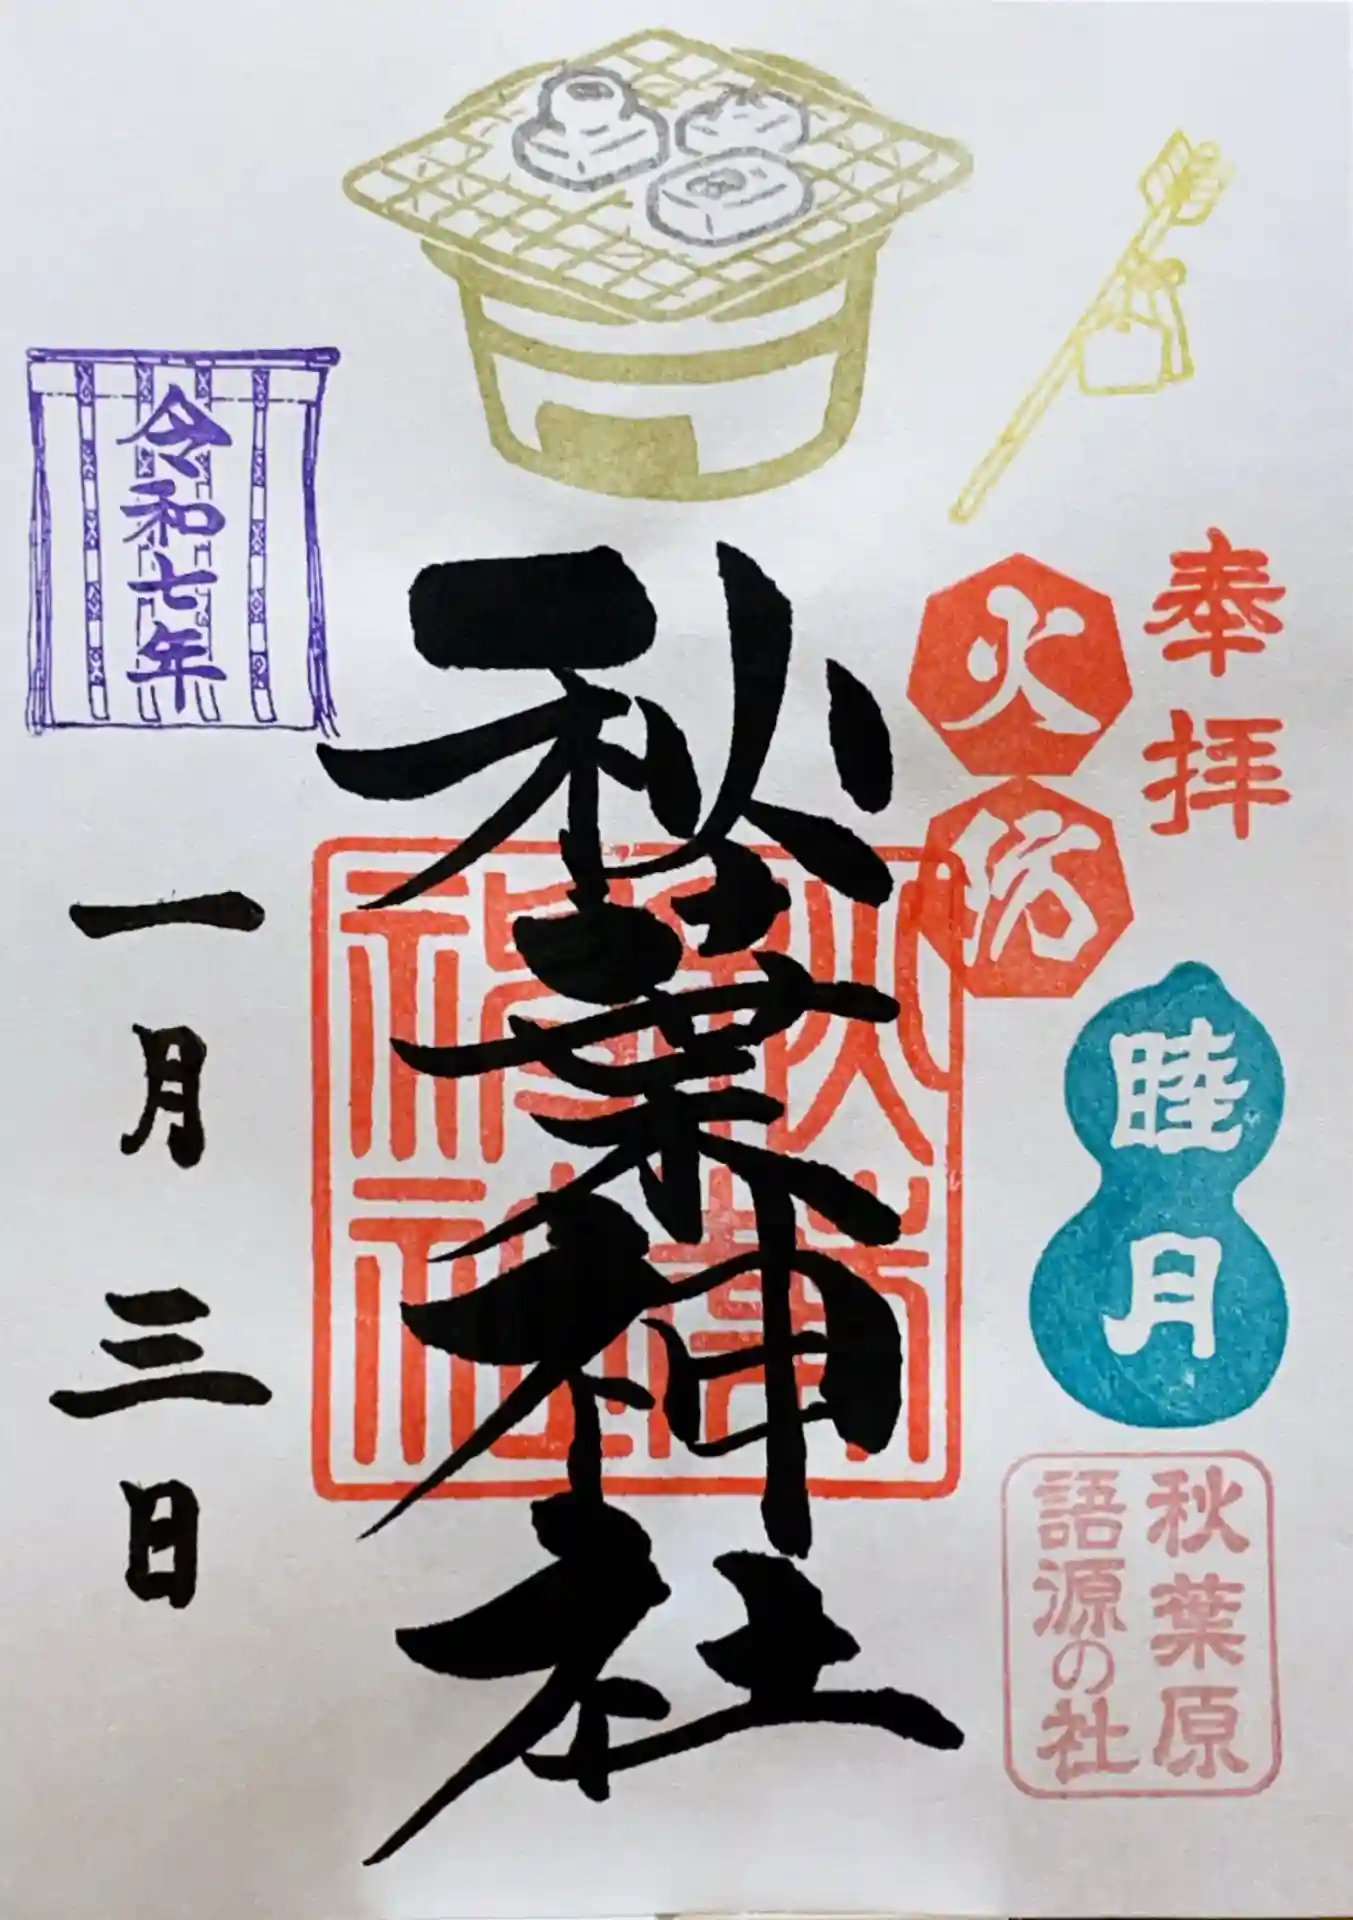 奉拝
火坊
睦月
秋葉原
語源の社
秋葉神社
秋葉
神社
令和七年
一月三日